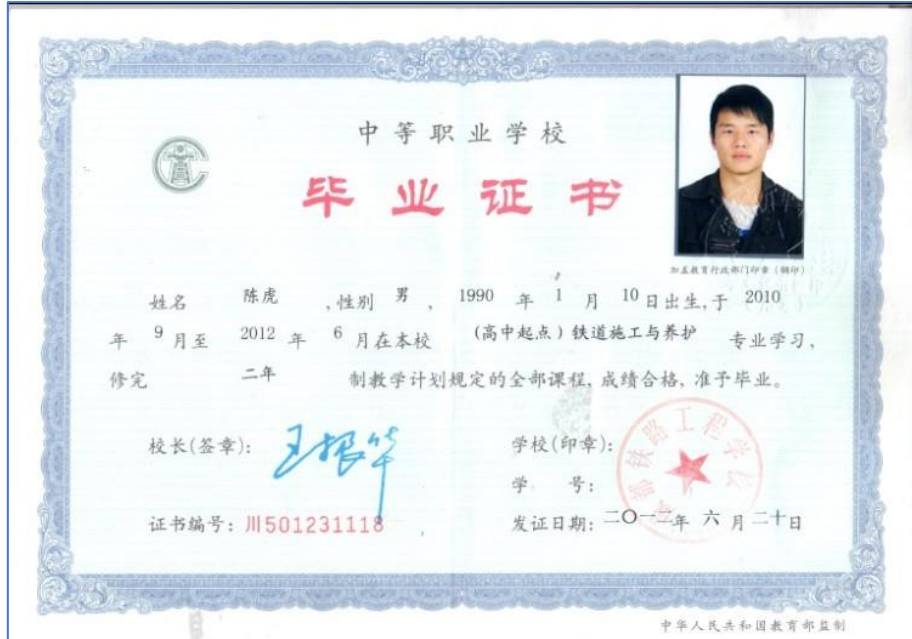 中等职业学校
毕业证书
加盖教育行政部门印章(钢印)
姓名 陈虎 ,性别 男 , 1990 年 1 月 10 日出生,于 2010
年 9 月至 2012 年 6 月在本校 (高中起点)铁道施工与养护 专业学习,
修完 二年 制教学计划规定的全部课程,成绩合格,准予毕业。
校长(签章):
学校(印章):
都铁路工程学校
学 号:
证书编号:川501231118
发证日期:二〇一二年 六 月 二十日
中华人民共和国教育部监制